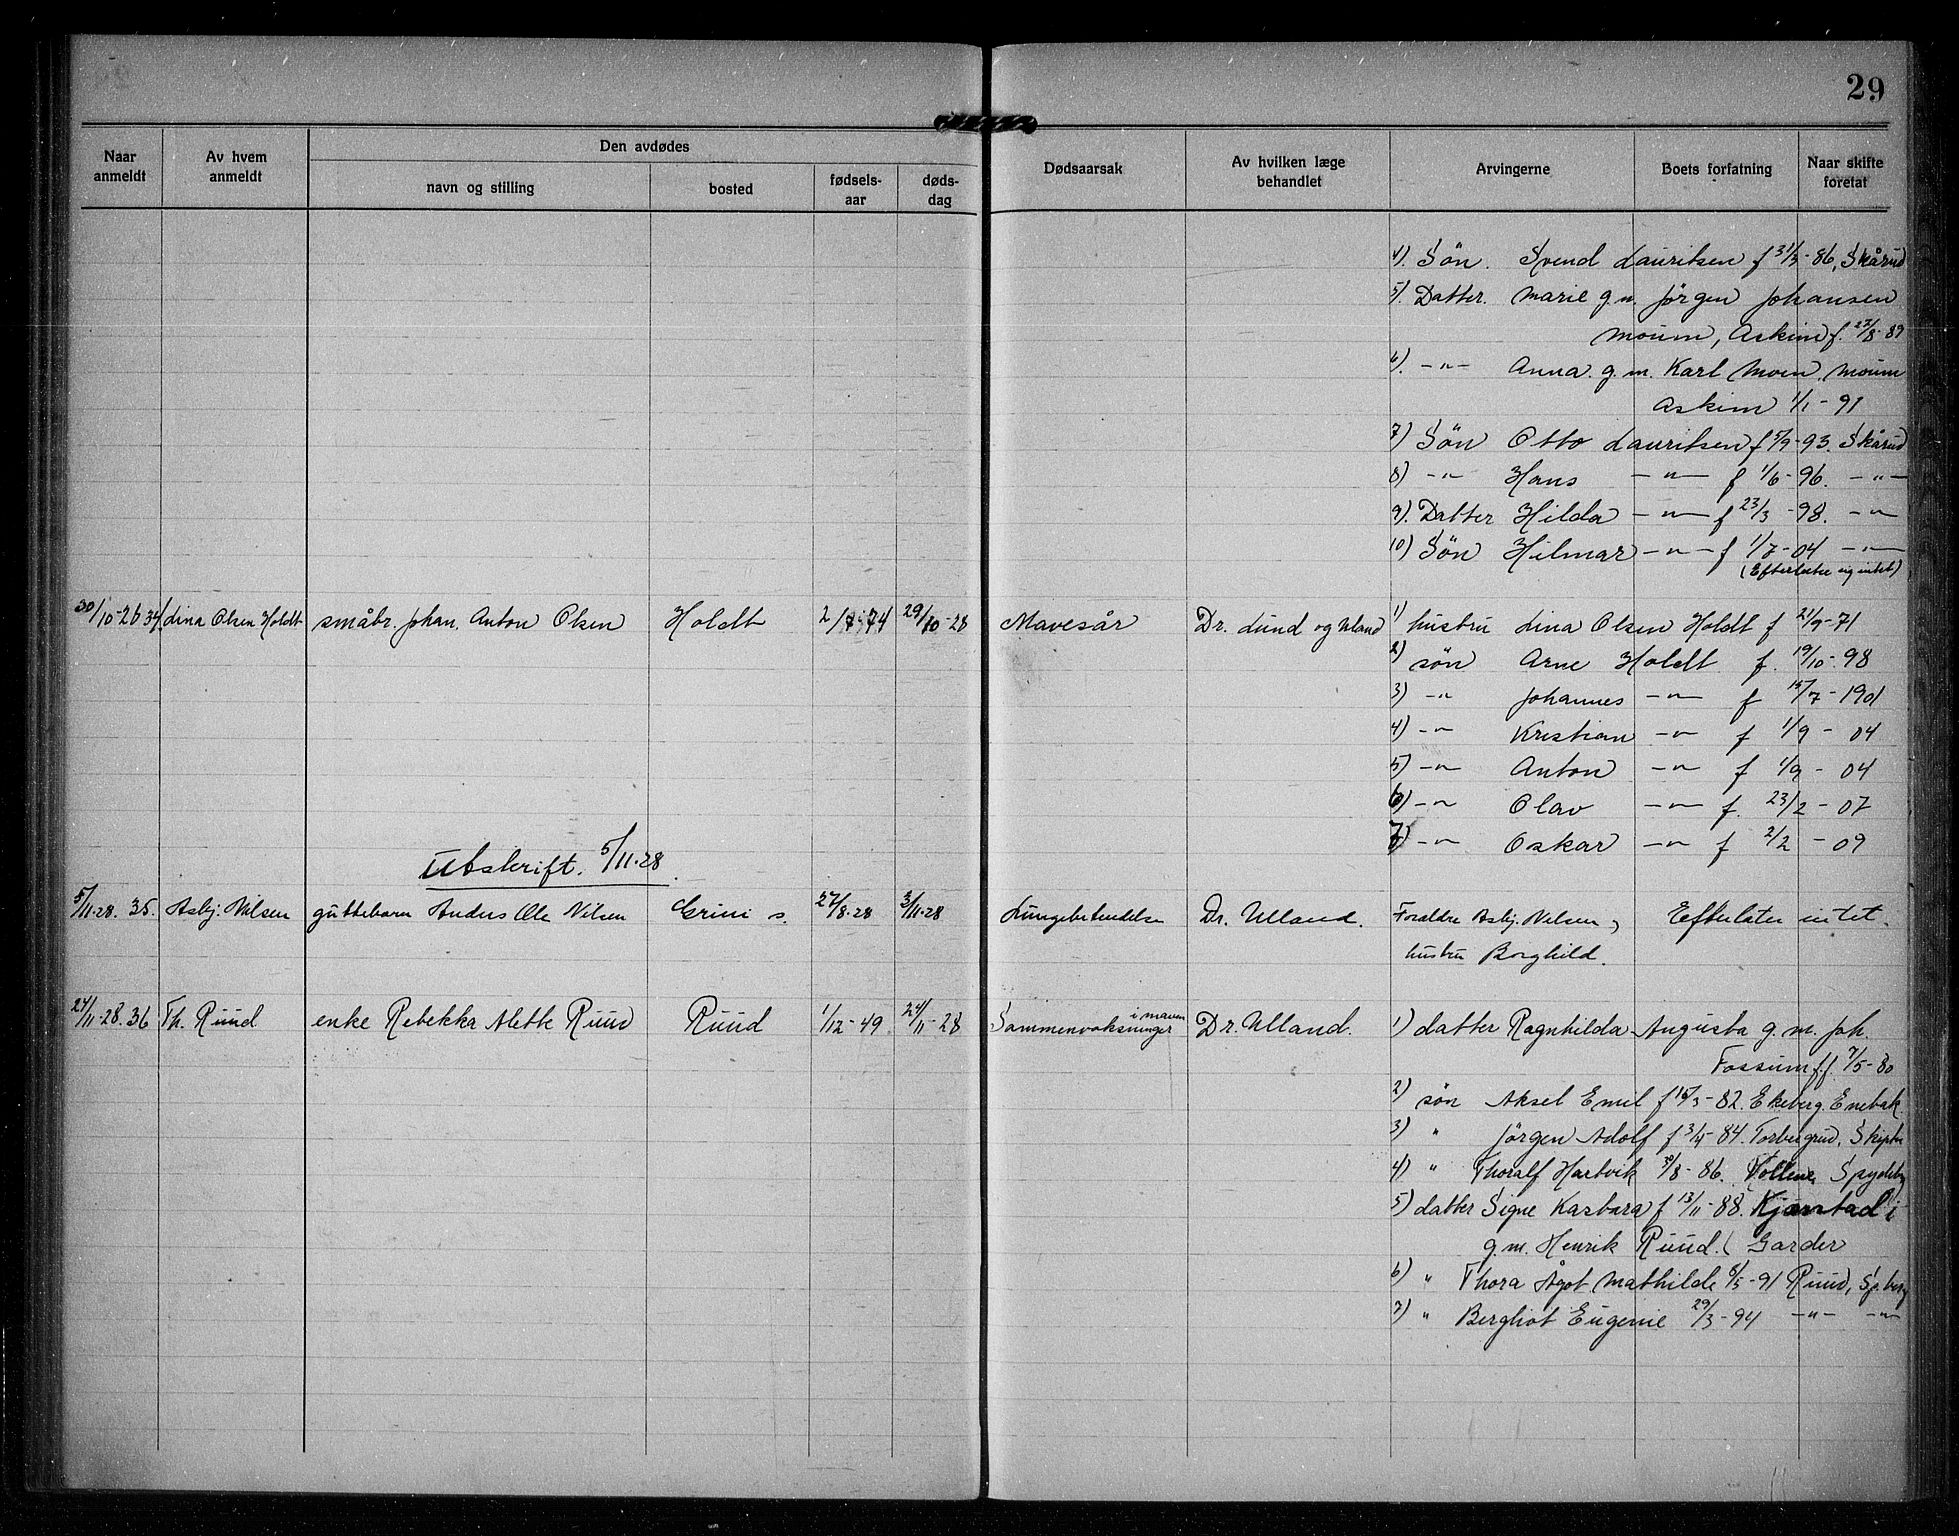 29
Naar anmeldt
Av hvem anmeldt
Den avdødes
navn og stilling
bosted
fødsels-aar
døds-dag
Dødsaarsak
Av hvilken læge behandlet
Arvingerne
Boets forfatning
Naar skifte foretat
4). Søn. Svend Lauritsen f 31/3-86, Skårud
5). Datter. Marie g.m. Jørgen Johansen
Moum, Askim f. 23/8-89
6). -"- Anna g.m. Karl Moen, Moum
Askim 1/1-91
7) Søn Otto Lauritsen f 5/9-93. Skårud
8) -"- Hans -"- f 1/6-96. -"-
9). Datter Hilda -"- f 23/3-98. -"-
10) Søn Hilmar -"- f 1/7-04 -"-
(Efterlater sig intet)
30/10-28 34. Lina Olsen Holdt småbr. Johan Anton Olsen Holdt 2/7-74 29/10-28 Mavesår Dr. Lund og Ulland 1) hustru Lina Olsen Holdt f 21/9-71
2) søn Arne Holdt f. 19/10-98
3) -"- Johannes -"- f 15/7-1901
4) -"- Kristian -"- f 1/9-04
5) -"- Anton -"- f 1/9-04
6) -"- Olav -"- f. 23/2-07
7) -"- Oskar -"- f 2/2-09
Utskrift. 5/11-28.
5/11-28. 35. Asbj. Nilsen guttebarn Anders Ole Nilsen Grini s. 27/8-28 3/11-28 Lungebetendelse Dr. Ulland. Foreldre Asbj. Nilsen, Efterlater intet.
hustru Borghild.
24/11-28. 36 Th. Ruud enke Rebekka Alette Ruud Ruud 1/12-49 24/11-28 Sammenvoksninger i maven Dr. Ulland. 1) datter Ragnhilda Augusta g.m. Joh.
Fossum f. 7/5-80
2) søn Aksel Emil f 16/3-82. Ekeberg. Enebak
3) " Jørgen Adolf f 3/4-84. Torbergrud, Skiptv
4) " Thoralf Hartvik 8-86. Spydeberg
5) datter Signe Kasbara f 13/11-88. Kjærstad i
g.m. Henrik Ruud. ( Garder
6) " Thora Ågot Mathilde 6/5-91 Ruud, Sp.berg
7) " Bergliot Eugenie 29/3-94 -"- -"-